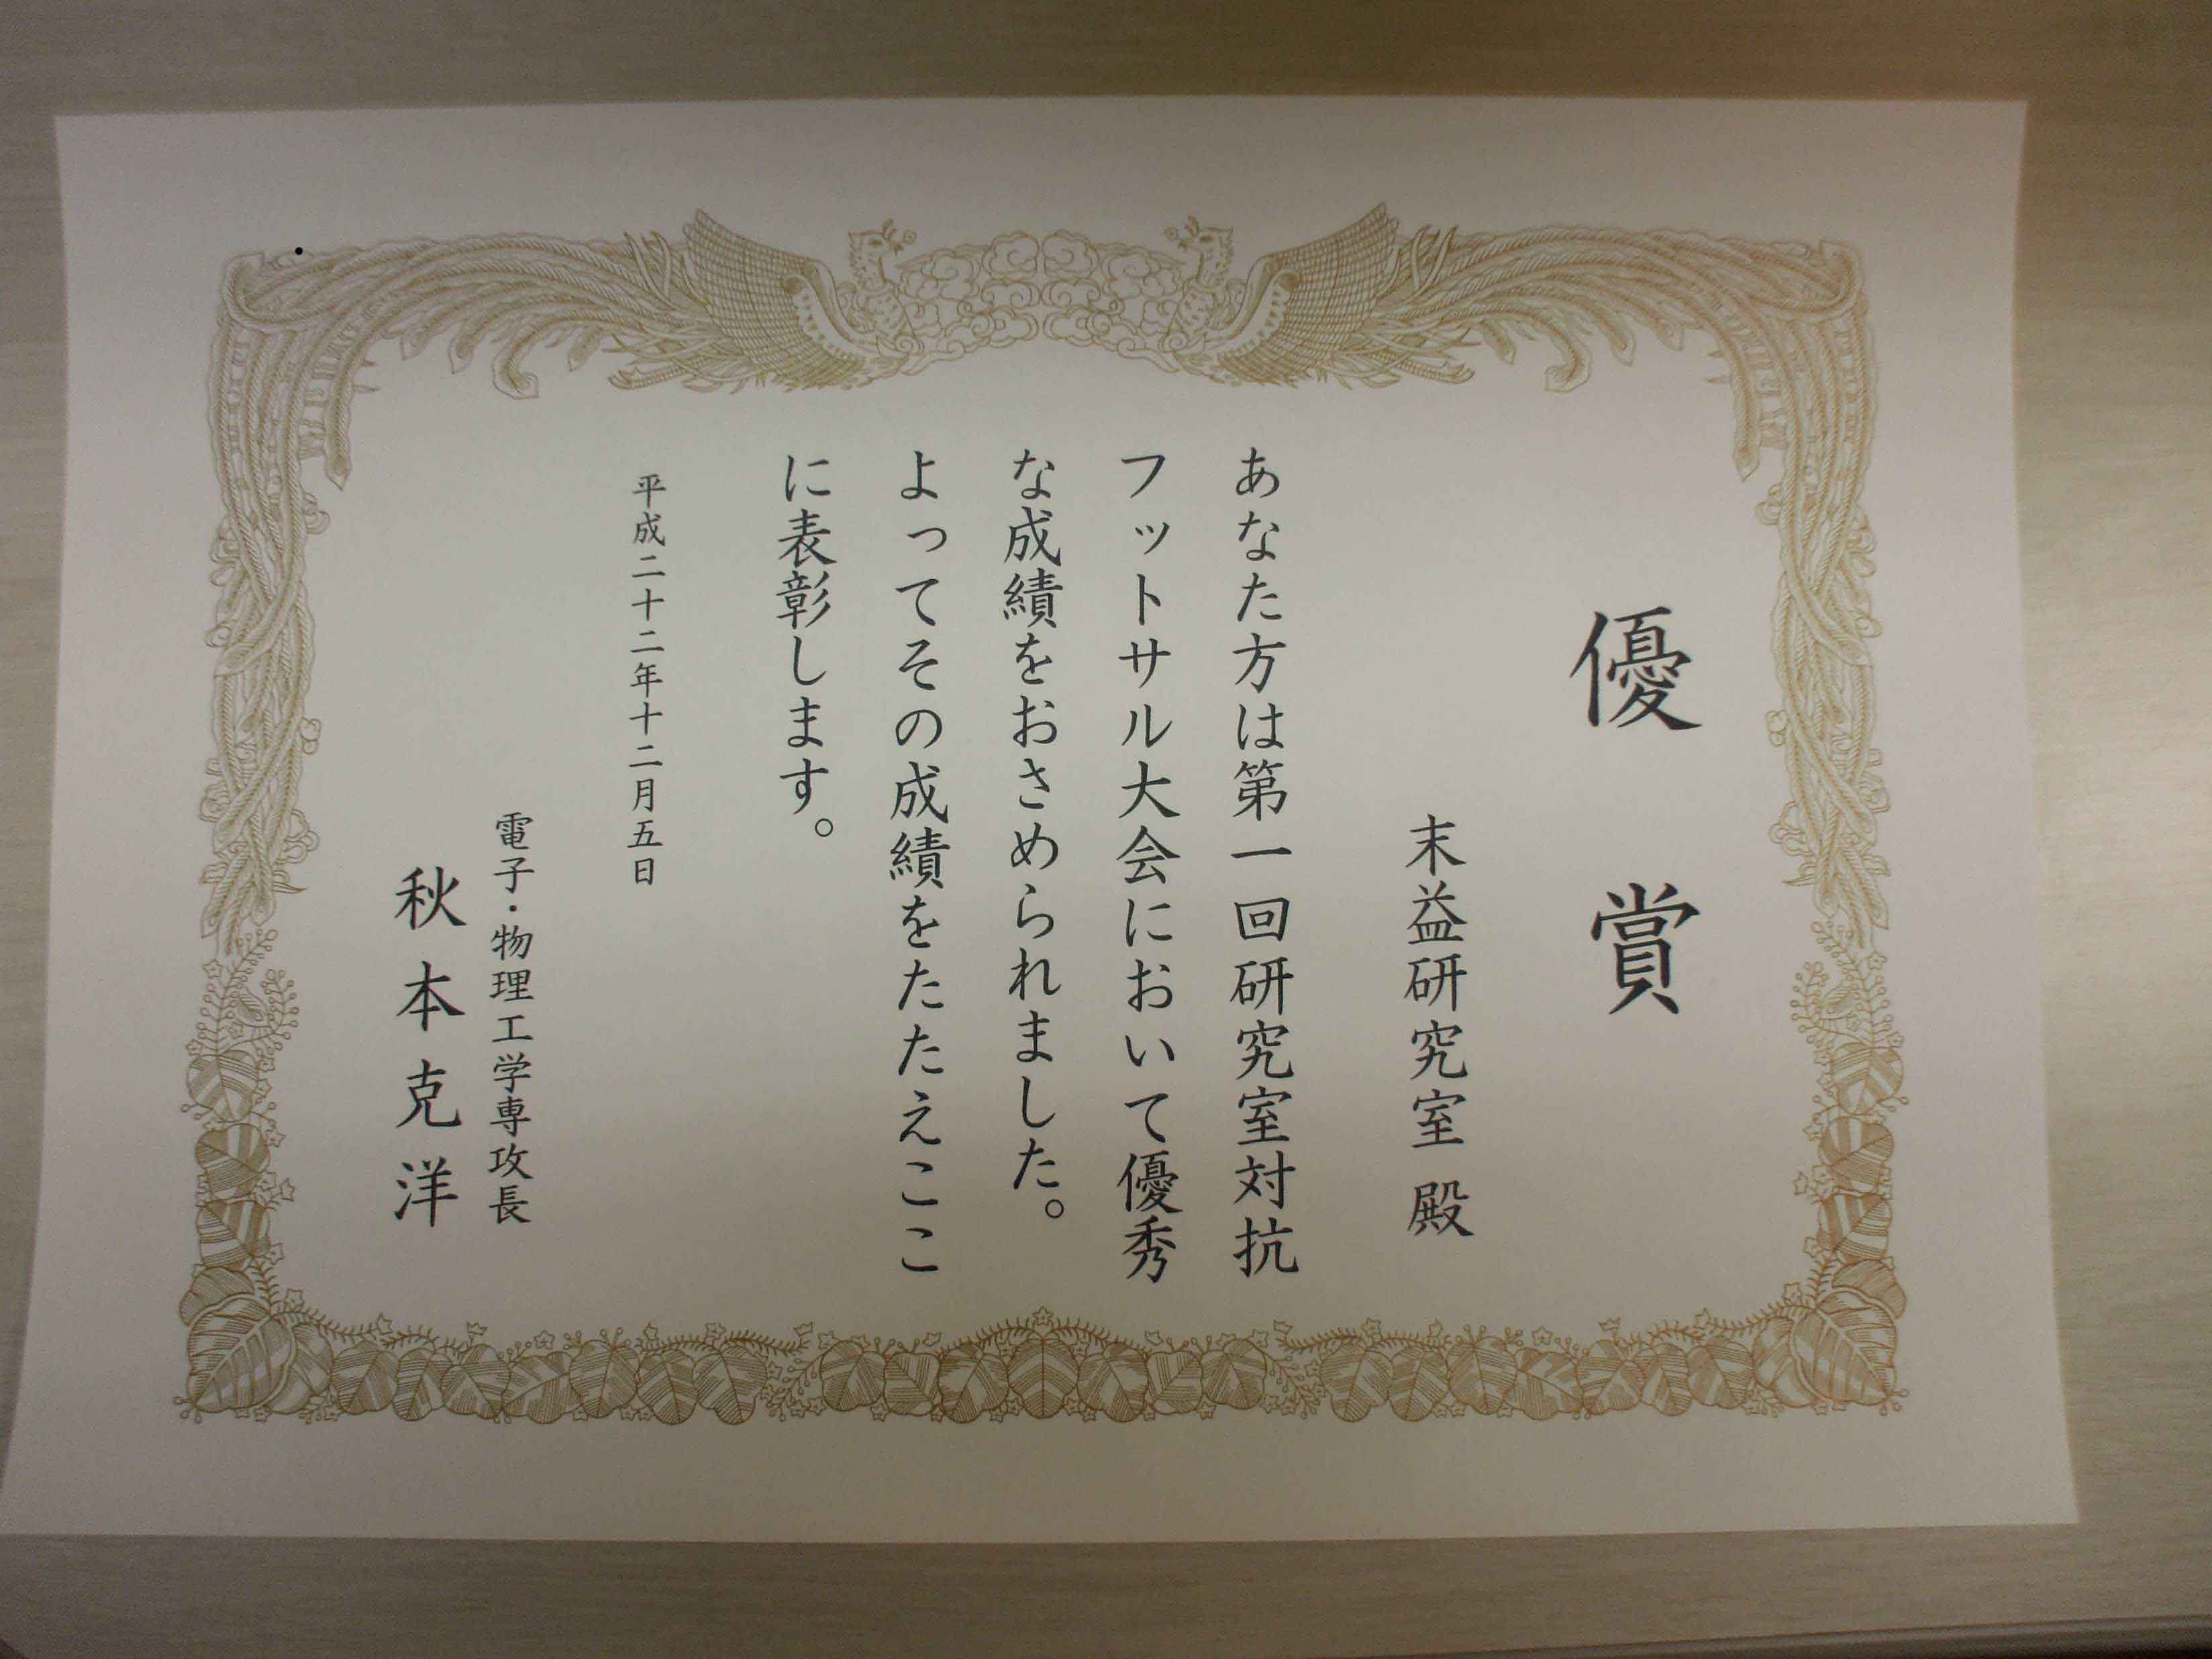 優賞
末益研究室 殿
あなた方は第一回研究室対抗
フットサル大会において優秀
な成績をおさめられました。
よってその成績をたたえここ
に表彰します。
平成二十二年十二月五日
電子・物理工学専攻長
秋本克洋